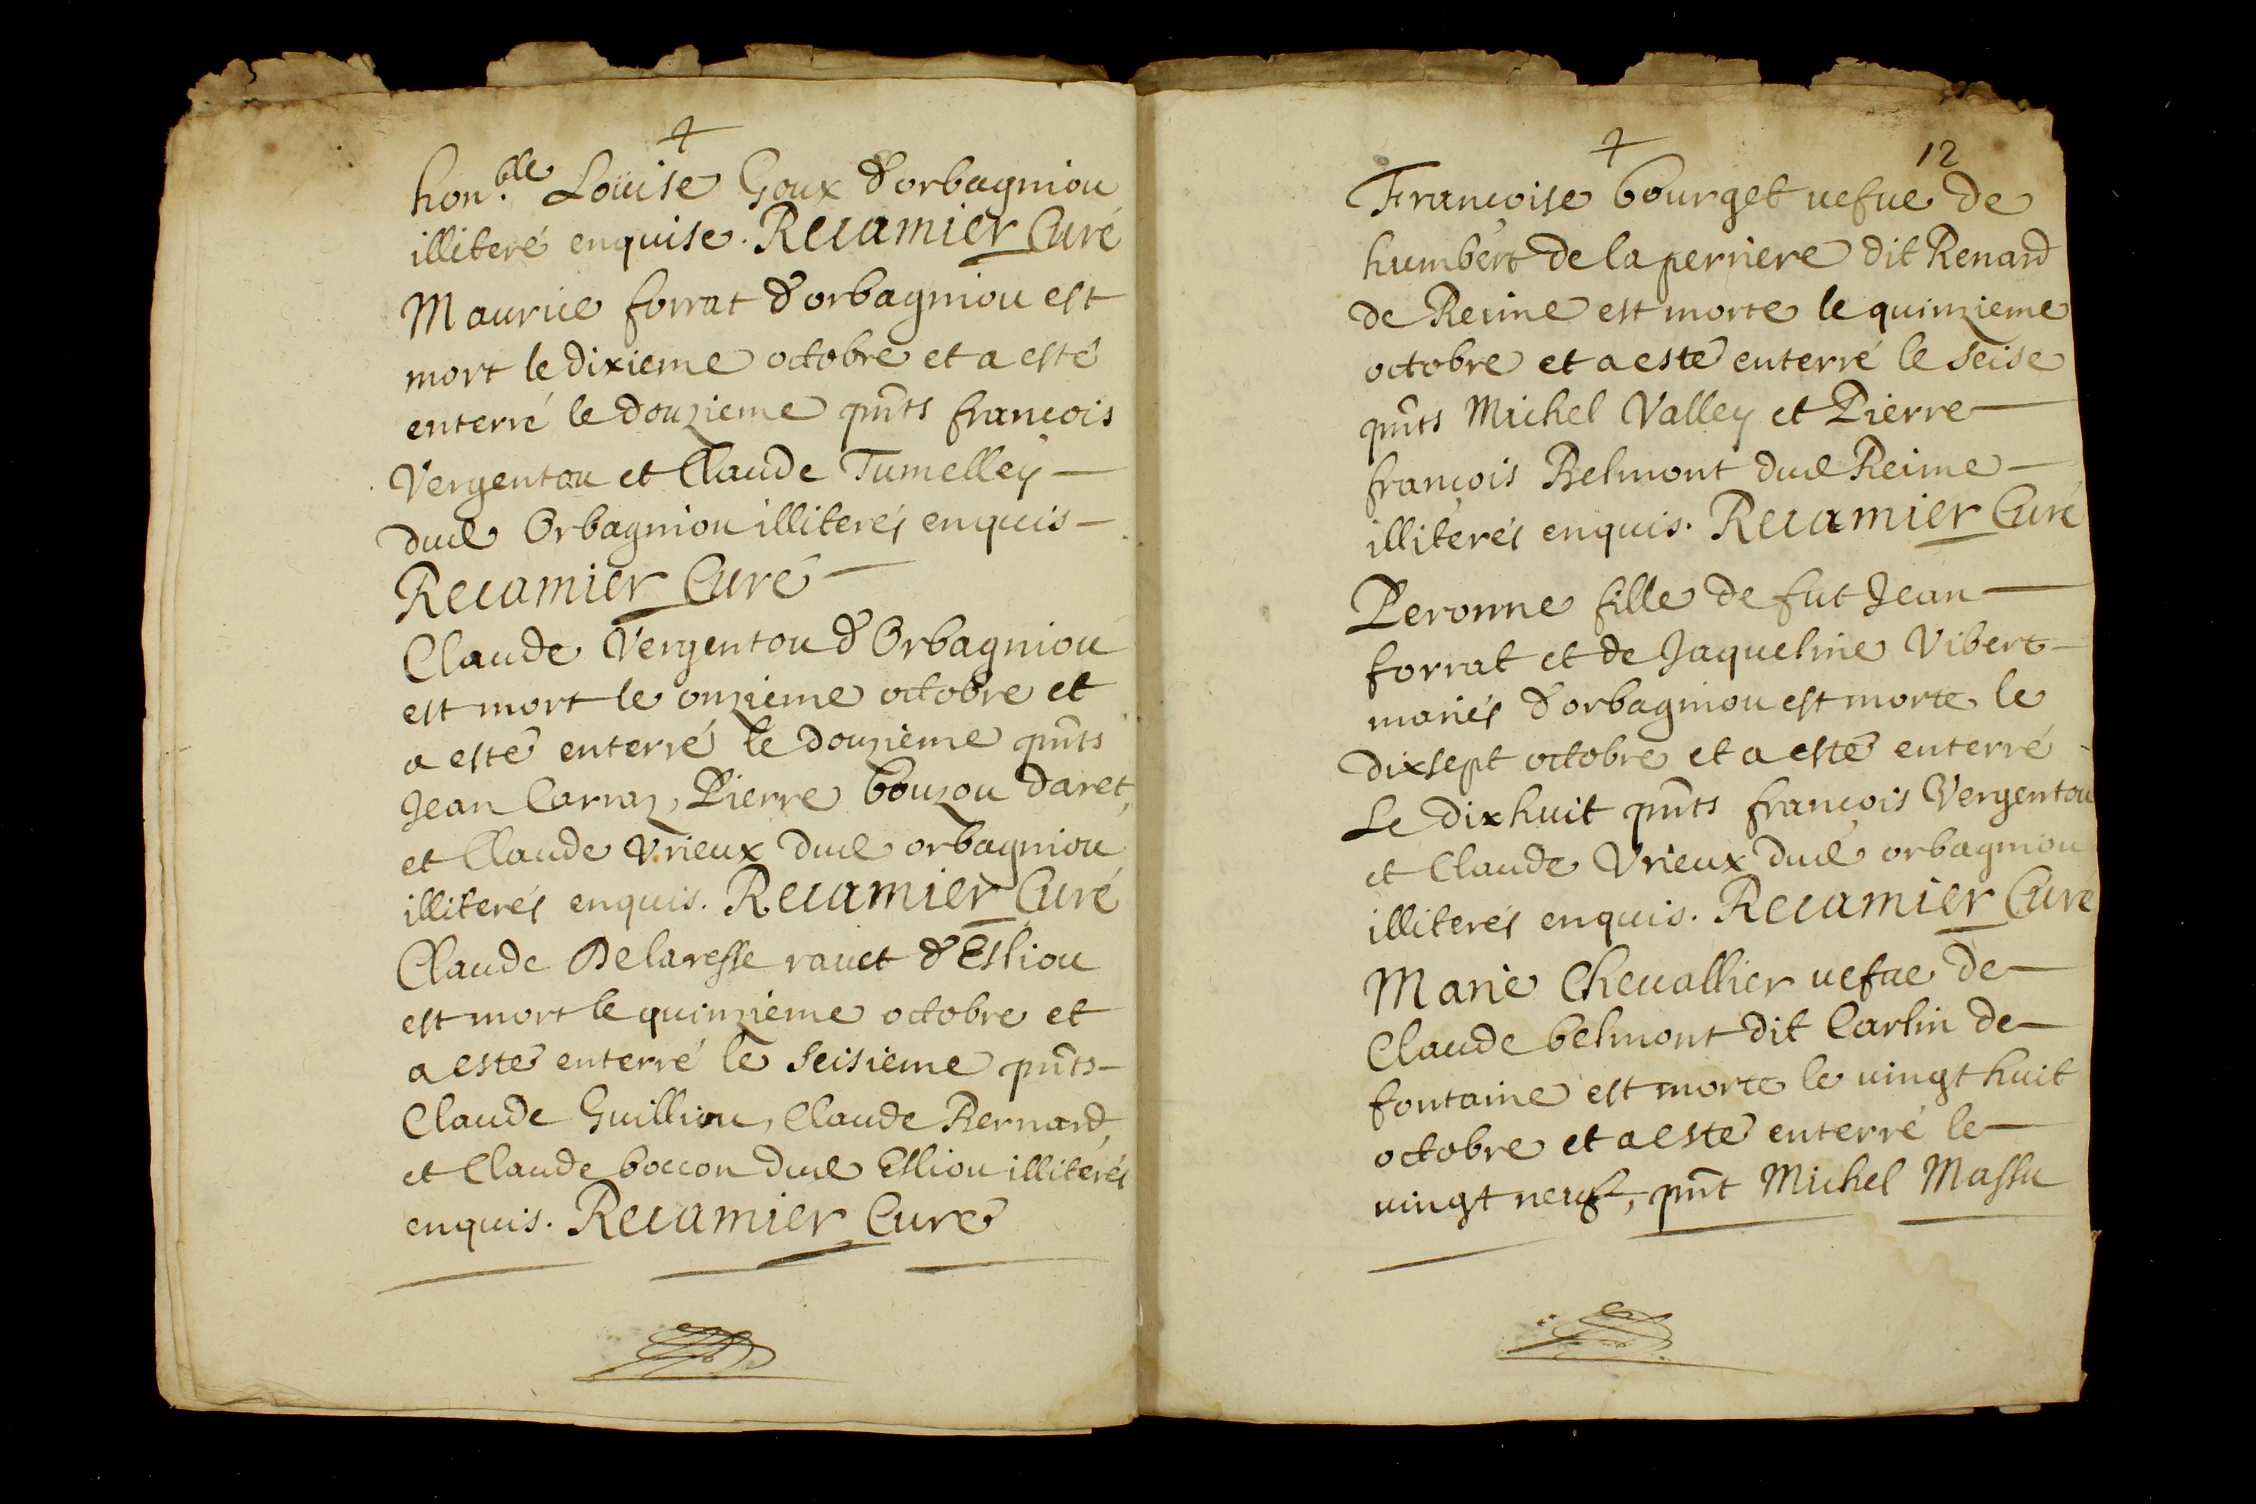 hon.ble Loüise Goux d'orbagniou
illiteré enquise. Recamier Curé
Maurice forrat d'orbagniou est
mort le dixieme octobre et a esté
enterré le douzieme pnts francois
Vergentou et Claude Tumelley
dud Orbagniou illiterés enquis
Recamier Curé
Claude Vergentou d'Orbagniou
est mort le onzieme octobre et
a esté enterré le douzieme pnts
Jean Carraz, Pierre bouzou daret,
et Claude Vrieux dud orbagniou
illiterés enquis. Recamier Curé
Claude Delaresse rauet d'Esliou
est mort le quinzieme octobre et
a esté enterré le seisieme pnts
Claude Guilliou, Claude Bernard,
et Claude boccon dud Esliou illiterés
enquis. Recamier Curé
12
Francoise bourget uefue de
humbert de laperriere dit Renard
de Reime est morte le quinzieme
octobre et a esté enterré le seise
pnts Michel Valley et Pierre
francois Belmont dud Reime
illiterés enquis. Recamier Curé
Peronne fille de fut Jean
forrat et de Jaqueline Vibert
mariés d'orbagniou est morte le
dixsept octobre et a esté enterré
Le dixhuit pnts francois Vergentou
et Claude Vrieux dud orbagniou
illiterés enquis. Recamier Curé
Marie Cheuallier uefue de
Claude belmont dit Carlin de
fontaine est morte le uingt huit
octobre et a esté enterré le
uingt neuf, pnt Michel Massu